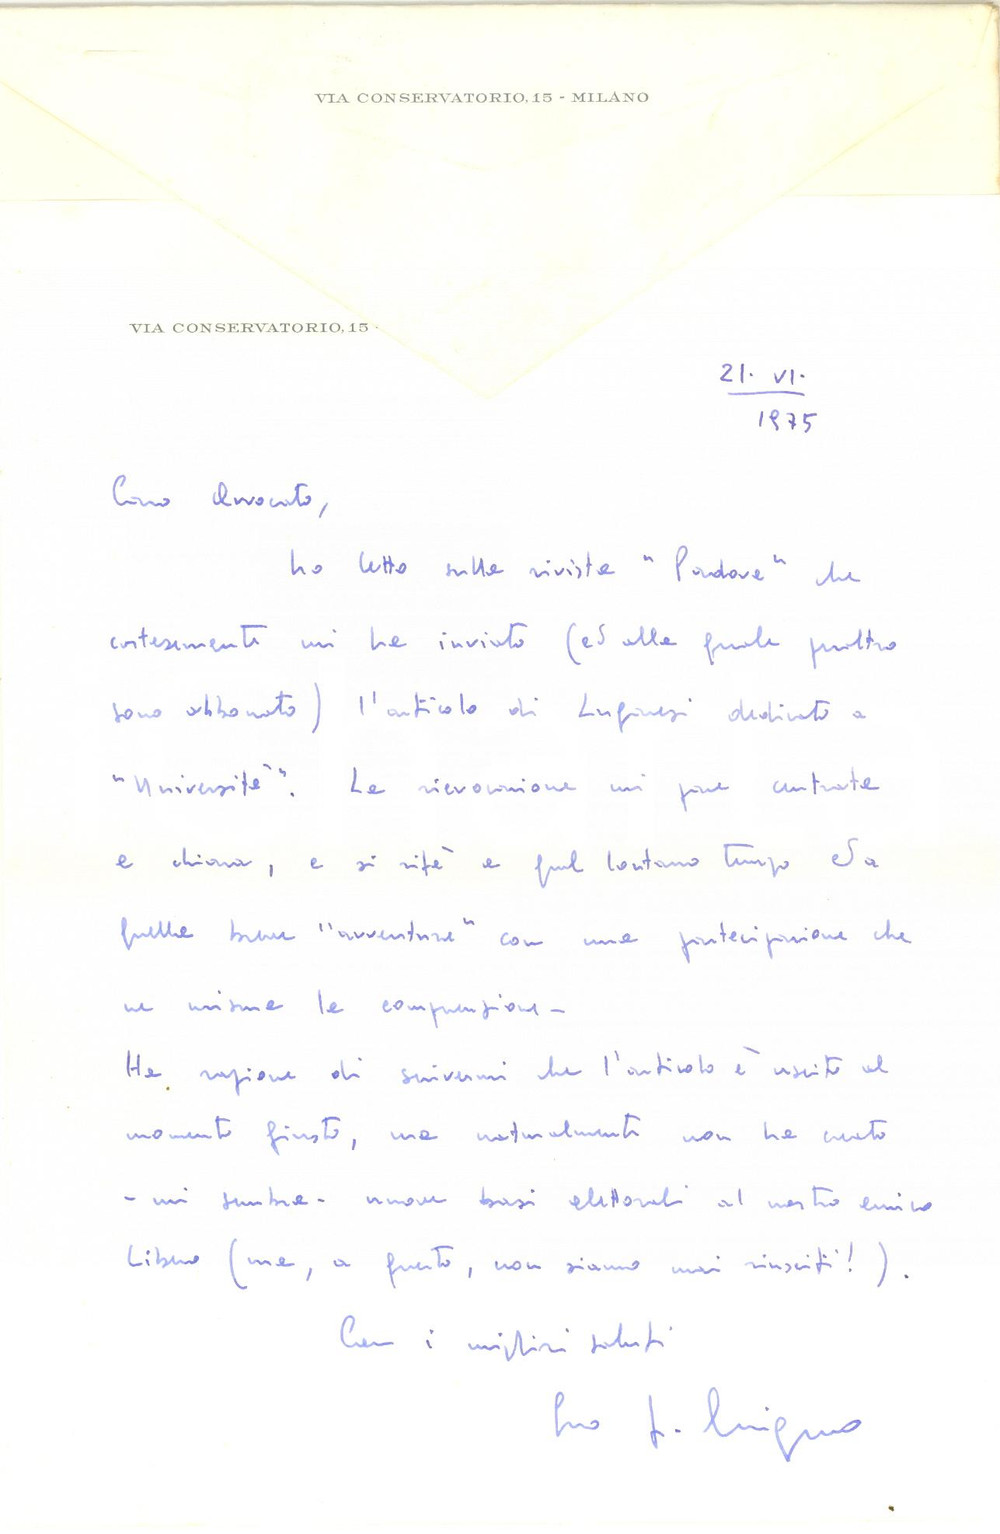 VIA CONSERVATORIO, 15 - MILANO
VIA CONSERVATORIO, 15 -
21. VI.
1975
Caro Avvocato,
ho letto sulla rivista "Padova" che
cortesemente mi ha inviato (ed alla quale peraltro
sono abbonato) l'articolo di Luginesi dedicato a
"Università". La rievocazione mi pare centrata
e chiara, e si rifà a quel lontano tempo ed a
quella breve "avventura" con una partecipazione che
ne misura la comprensione -
Ha ragione di scrivermi che l'articolo è uscito al
momento giusto, ma naturalmente non ha creato
- mi sembra - nuove basi elettorali al nostro amico
Libero (ma, a questo, non siamo mai riusciti!).
Con i migliori saluti
Suo